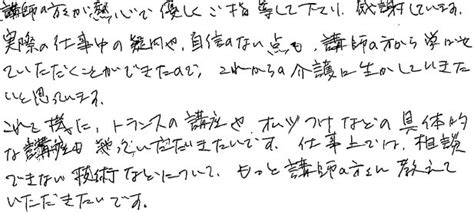 講師の方が熱心で優しくご指導して下さり、感謝しています。
実際の仕事中の疑問や、自信のない点も、講師の方から学ばせ
ていただくことができたので、これからの介護に生かしていきた
いと思っています。
これを機に、トランスの講座や、オムツつけなどの具体的
な講座も いただきたいです。仕事上では、相談
できない技術などについて、もっと講師の方に教えて
いただきたいです。